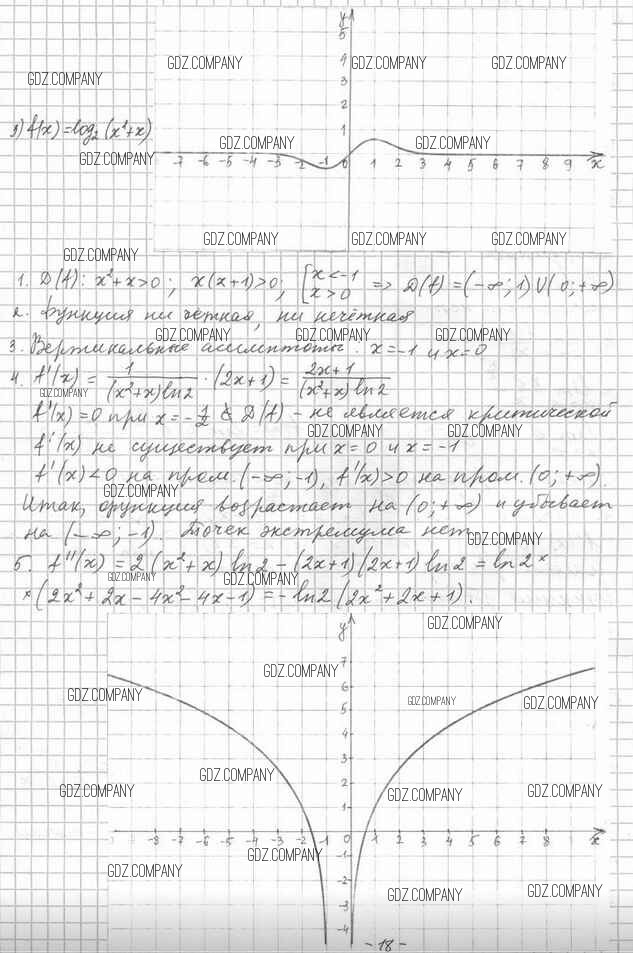 y
5
4
3
2
1
-7 -6 -5 -4 -3 -2 -1 0 1 2 3 4 5 6 7 8 9 x
GDZ.COMPANY GDZ.COMPANY GDZ.COMPANY
GDZ.COMPANY
f(x)=log₂(x²+x)
GDZ.COMPANY GDZ.COMPANY
GDZ.COMPANY
GDZ.COMPANY GDZ.COMPANY GDZ.COMPANY
GDZ.COMPANY
1. D(f): x²+x>0; x(x+1)>0; [x<-1 x>0 => D(f)=(-∞;1)∪(0;+∞)
2. Функция ни четная, ни нечётная
GDZ.COMPANY GDZ.COMPANY GDZ.COMPANY
3. Вертикальные асимптоты: x=-1 и x=0
4. f'(x) = 1/((x²+x)ln2) · (2x+1) = (2x+1)/((x²+x)ln2)
GDZ.COMPANY
f'(x)=0 при x=-1/2 ∉ D(f) - не является критической
GDZ.COMPANY GDZ.COMPANY
f'(x) не существует при x=0 и x=-1
f'(x)<0 на пром. (-∞;-1), f'(x)>0 на пром. (0;+∞).
GDZ.COMPANY
Итак, функция возрастает на (0;+∞) и убывает
на (-∞;-1). Точек экстремума нет
GDZ.COMPANY
5. f''(x) = 2(x²+x)ln2-(2x+1)(2x+1)ln2 = ln2×
GDZ.COMPANY GDZ.COMPANY
×(2x²+2x-4x²-4x-1)=-ln2(2x²+2x+1).
GDZ.COMPANY
y
7
6
5
4
3
2
1
GDZ.COMPANY
GDZ.COMPANY GDZ.COMPANY GDZ.COMPANY
GDZ.COMPANY
GDZ.COMPANY GDZ.COMPANY GDZ.COMPANY
-8 -7 -6 -5 -4 -3 -2 -1 0 1 2 3 4 5 6 7 8 x
-1
-2
-3
-4
GDZ.COMPANY
GDZ.COMPANY
GDZ.COMPANY GDZ.COMPANY
-18-